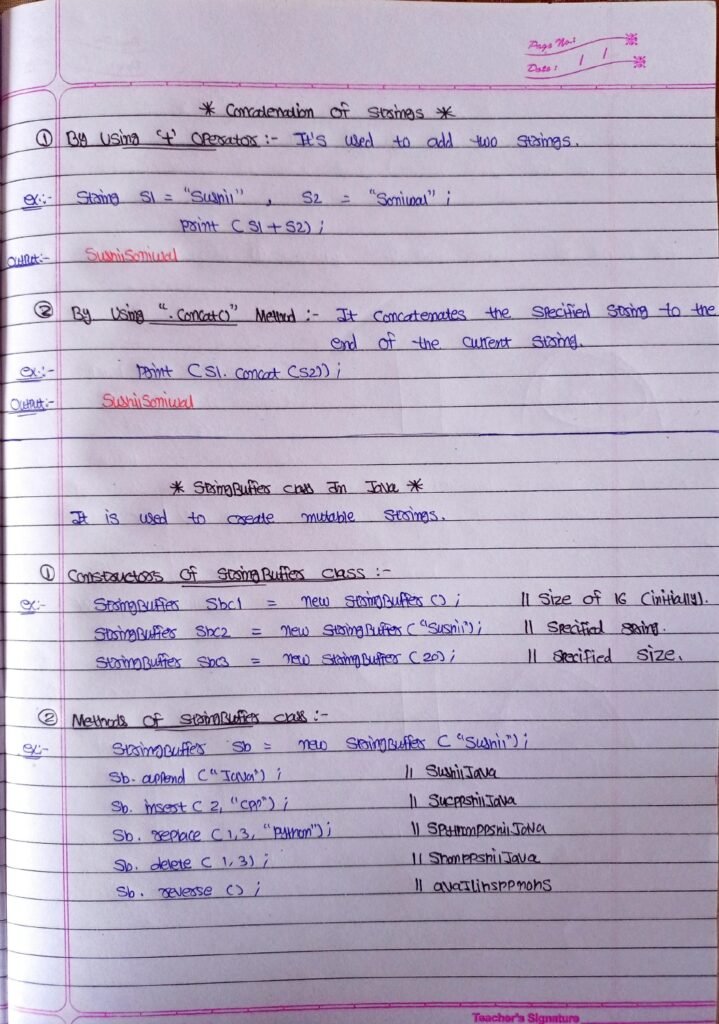 Page No.:
Date: / /
* Concatenation of Strings *
① By Using '+' Operator :- It's used to add two strings.
ex:- String S1 = "Sushii" , S2 = "Soniwal" ;
print ( S1 + S2) ;
Output:- SushiiSoniwal
② By Using ".concat()" Method :- It concatenates the specified string to the
end of the current string.
ex:- print ( S1. concat ( S2)) ;
Output:- SushiiSoniwal
* StringBuffer class In Java *
It is used to create mutable strings.
① Constructors of StringBuffer class :-
ex:- StringBuffer Sbc1 = new StringBuffer () ; // Size of 16 (initially).
StringBuffer Sbc2 = new StringBuffer ( "Sushii") ; // Specified string.
StringBuffer Sbc3 = new StringBuffer ( 20) ; // Specified size.
② Methods of StringBuffer class :-
ex:- StringBuffer Sb = new StringBuffer ( "Sushii") ;
Sb. append ( "Java") ; // SushiiJava
Sb. insert ( 2, "Cpp") ; // SuCppshiiJava
Sb. replace ( 1,3, "Python") ; // SPythonppshiiJava
Sb. delete ( 1,3) ; // SthonppshiiJava
Sb. reverse () ; // avaJiihsppnohS
Teacher's Signature